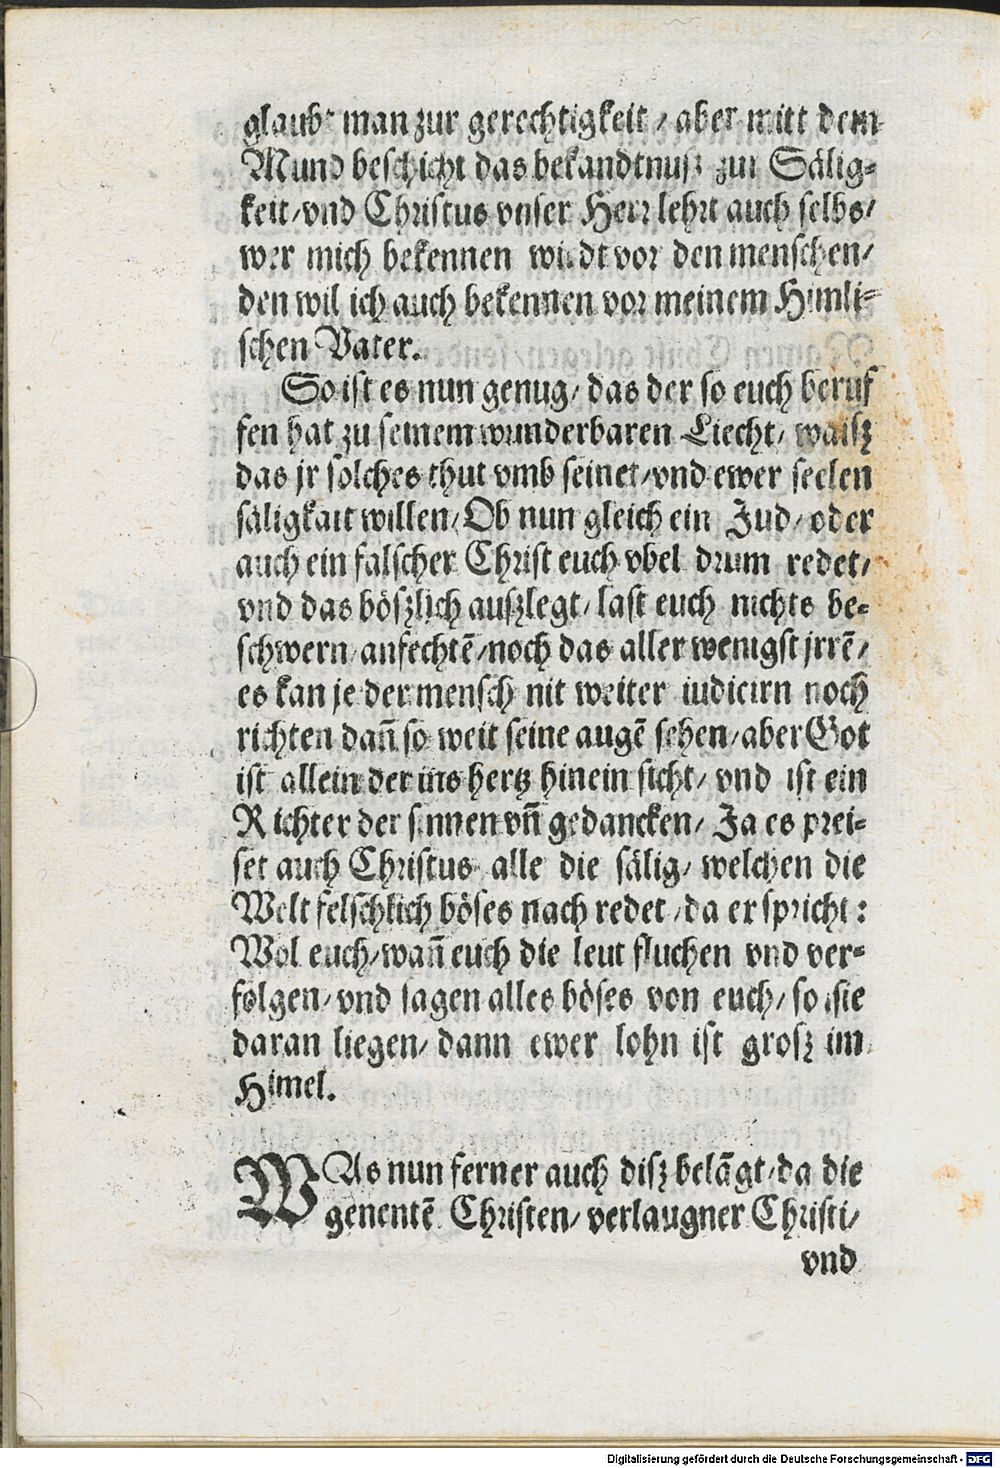 glaubt man zur gerechtigkeit / aber mitt dem
Mund beschicht das bekandtnusz zur Sälig⸗
keit / vnd Christus vnser Herr lehrt auch selbs /
wer mich bekennen wirdt vor den menschen /
den wil ich auch bekennen vor meinem Himli⸗
schen Vater.
So ist es nun genug / das der so euch beruf
fen hat zu seinem wunderbaren Liecht / waisz
das jr solches thut vmb seinet / vnd ewer seelen
säligkait willen / Ob nun gleich ein Jud / oder
auch ein falscher Christ euch vbel drum redet /
vnd das böszlich auszlegt / last euch nichts be⸗
schwern / anfechtē / noch das aller wenigst jrrē /
es kan je der mensch nit weiter iudicirn noch
richten dañ so weit seine augē sehen / aber Got
ist allein der ins hertz hinein sicht / vnd ist ein
Richter der sinnen vñ gedancken / Ja es prei⸗
set auch Christus alle die sälig / welchen die
Welt felschlich böses nach redet / da er spricht :
Wol euch / wañ euch die leut fluchen vnd ver⸗
folgen / vnd sagen alles böses von euch / so sie
daran liegen / dann ewer lohn ist grosz im
Himel.
WAs nun ferner auch disz belāgt / da die
genentē Christen / verlaugner Christi /
vnd
Digitalisierung gefördert durch die Deutsche Forschungsgemeinschaft - DFG